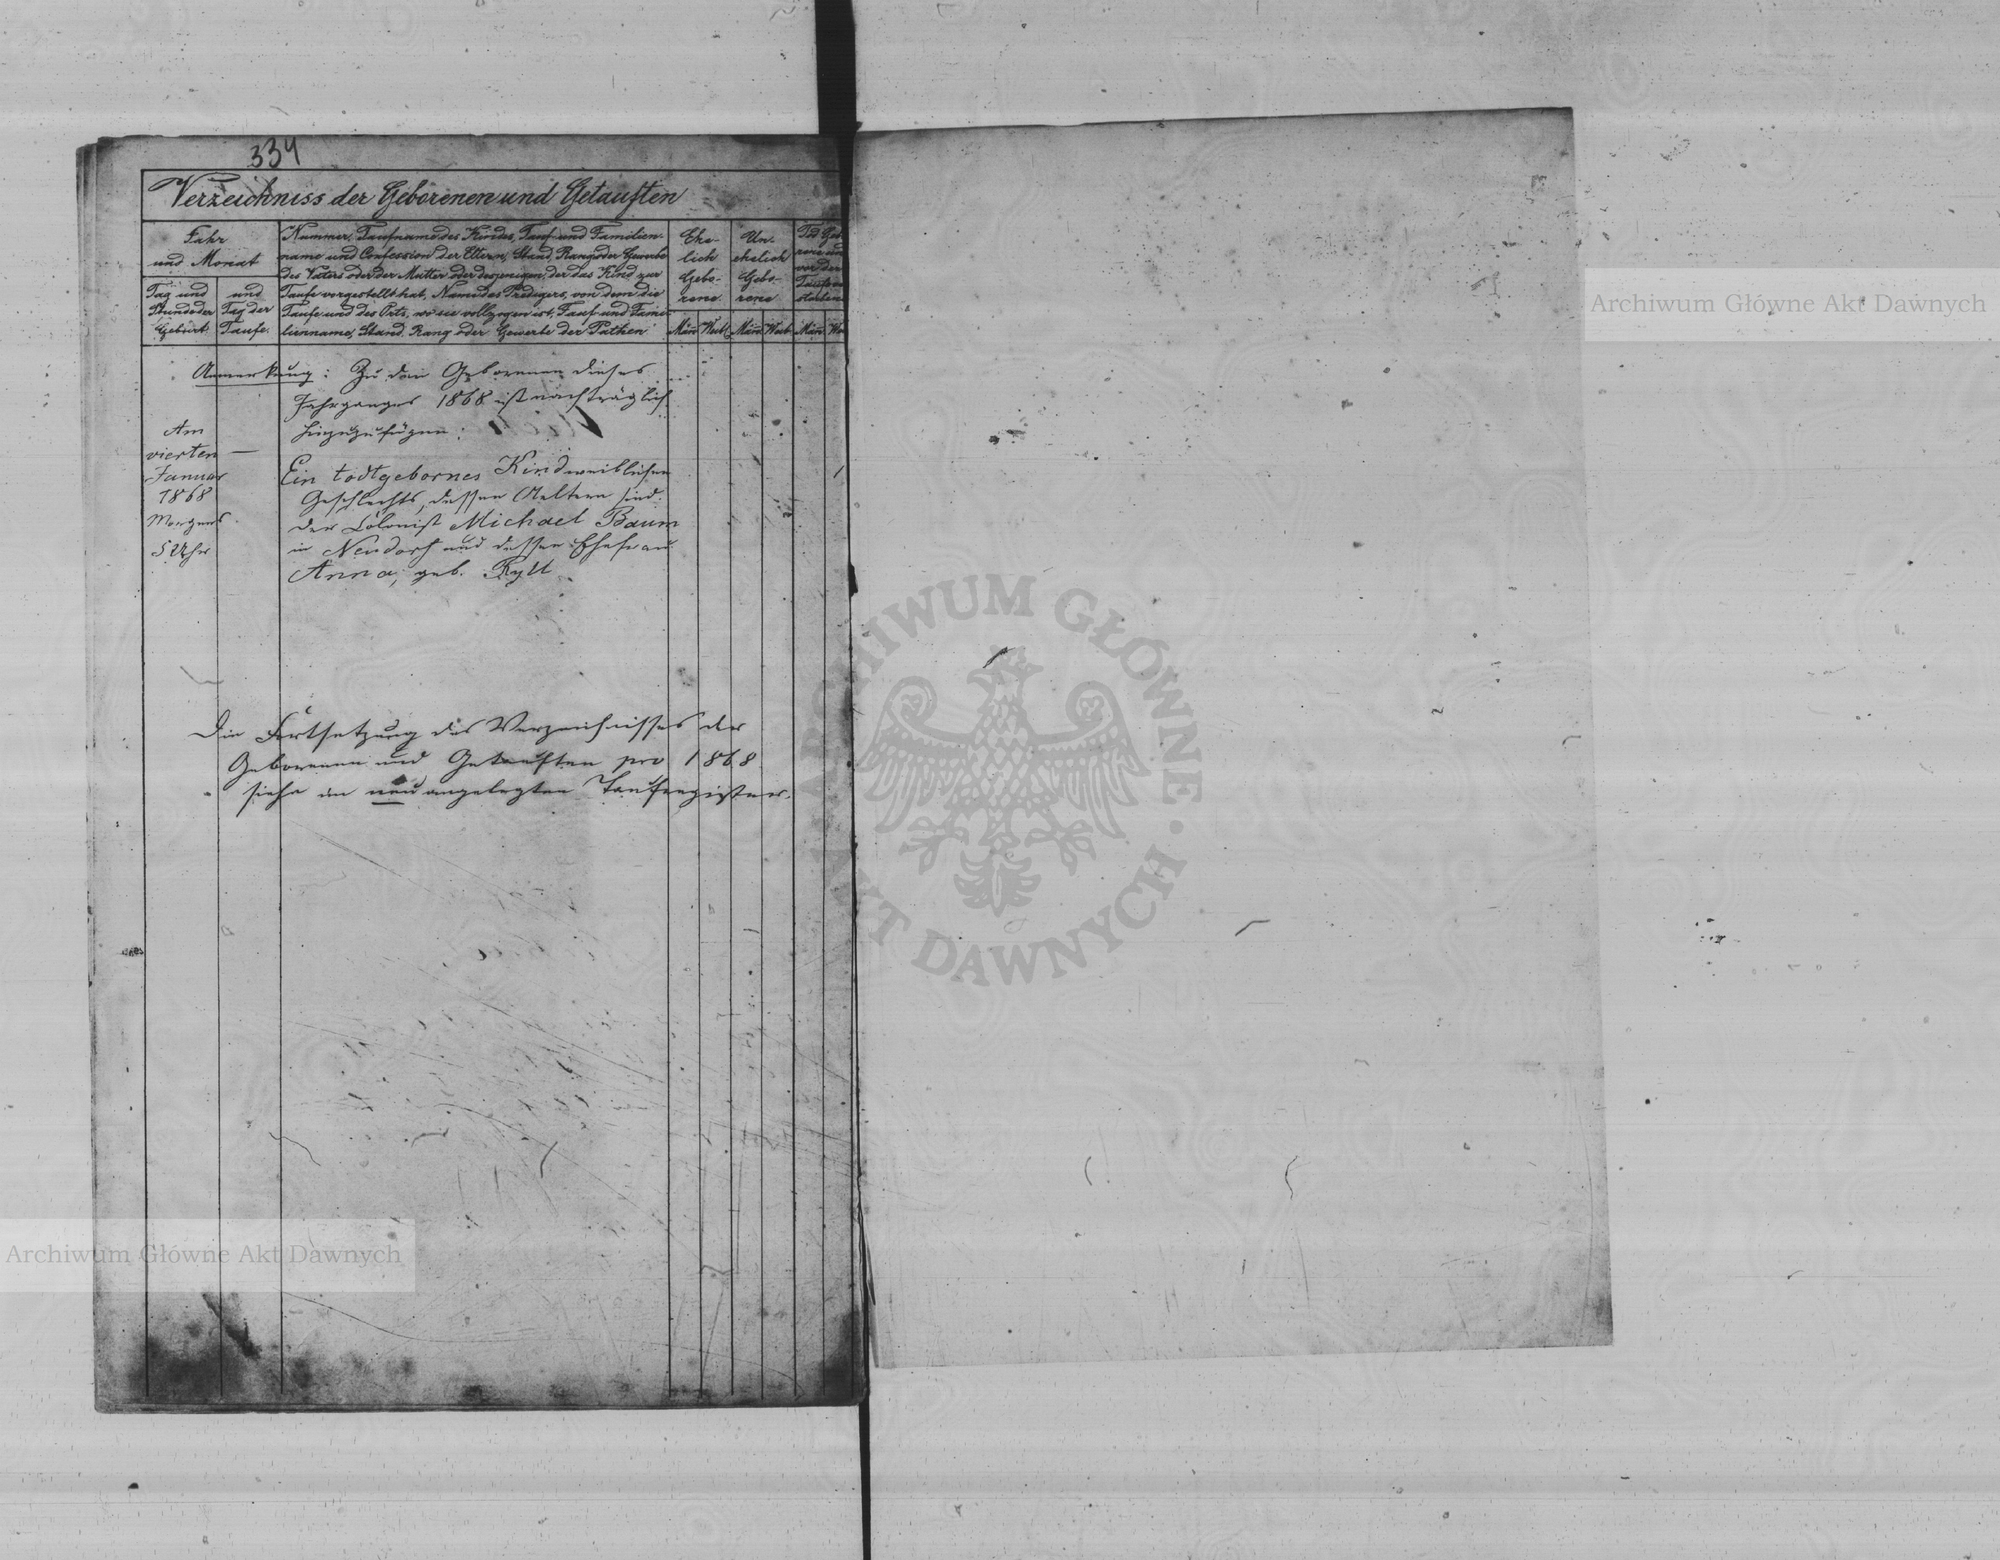 334
Verzeichniss der Geborenen und Getauften
Jahr
und Monat
Tag und
Stunde der
Geburt.
und
Tag der
Taufe.
Nummer, Taufname des Kindes, Tauf- und Familien-
name und Confession der Eltern, Stand, Rang oder Gewerbe
des Vaters oder der Mutter oder desjenigen, der das Kind zur
Taufe vorgestellt hat, Name des Predigers, von dem die
Taufe und des Orts, wo sie vollzogen ist, Tauf- und Fami-
lienname, Stand, Rang oder Gewerbe der Pathen
Ehe-
lich
Gebo-
rene.
Un-
ehelich
Gebo-
rene
Tod Geb
rene und
vor der
Taufe
storbene
Män Weib Män Weib Män We
Anmerkung: Zu den Geborenen dieses
Jahrganges 1868 ist nachträglich
hinzuzufügen:
Am
vierten —
Januar
1868
Morgens
5 Uhr
Ein todtgebornes Kind weiblichen
Geschlechts, dessen Aeltern sind:
der Colonist Michael Baum
in Neudorf und dessen Ehefrau
Anna, geb. Rytt
1
Die Fortsetzung des Verzeichnisses der
Geborenen und Getauften pro 1868
siehe im neu angelegten Taufregister.
Archiwum Główne Akt Dawnych
ARCHIWUM GŁÓWNE · AKT DAWNYCH ·
Archiwum Główne Akt Dawnych